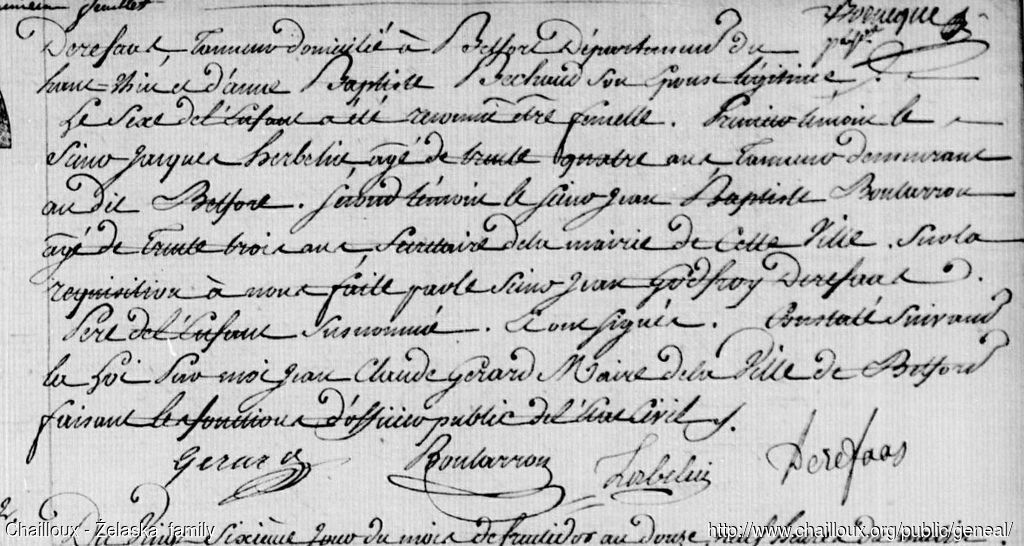 feuillet
Derefaas Tanneur domicilié à Belfort Département du
haut-Rhin et d'anne Baptiste Bechaud son Epouse légitime.
Le Sexe de l'Enfant a été reconnu être femelle. Premier témoin le
Sieur Jacques Herbelin agé de trente quatre ans Tanneur demeurant
audit Belfort. Sécond témoin le Sieur Jean Baptiste Boularron
agé de trente trois ans Secretaire de la mairie de Cette Ville. Sur la
requisition à nous faite par le Sieur Jean Godfroy Derefaas
Pere de l'Enfant Susnommé. Et ont Signés. Constaté Suivant
la Loi Par moi Jean Claude Gérard Maire de la Ville de Belford
faisant les fonctions d'officier public de l'Etat Civil.
Gerard Boularron Herbelin Derefaas
Du Vingt Sixième Jour du mois de fruitidor an douze
Chailloux - Želaska family
http://www.chailloux.org/public/geneal/